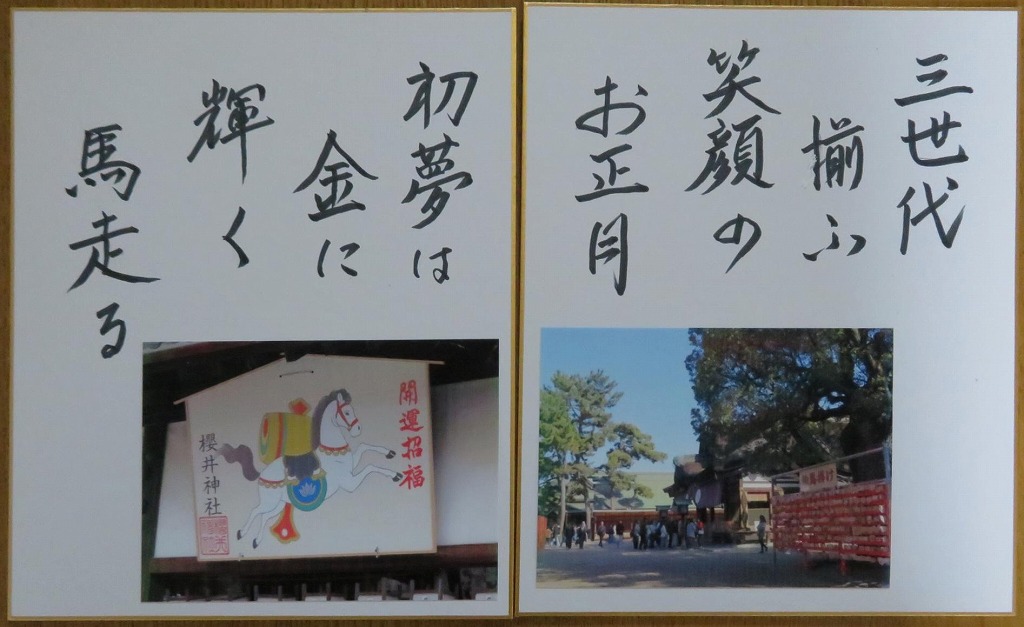 三世代
揃ふ
笑顔の
お正月
初夢は
金に
輝く
馬走る
開運招福
櫻井神社